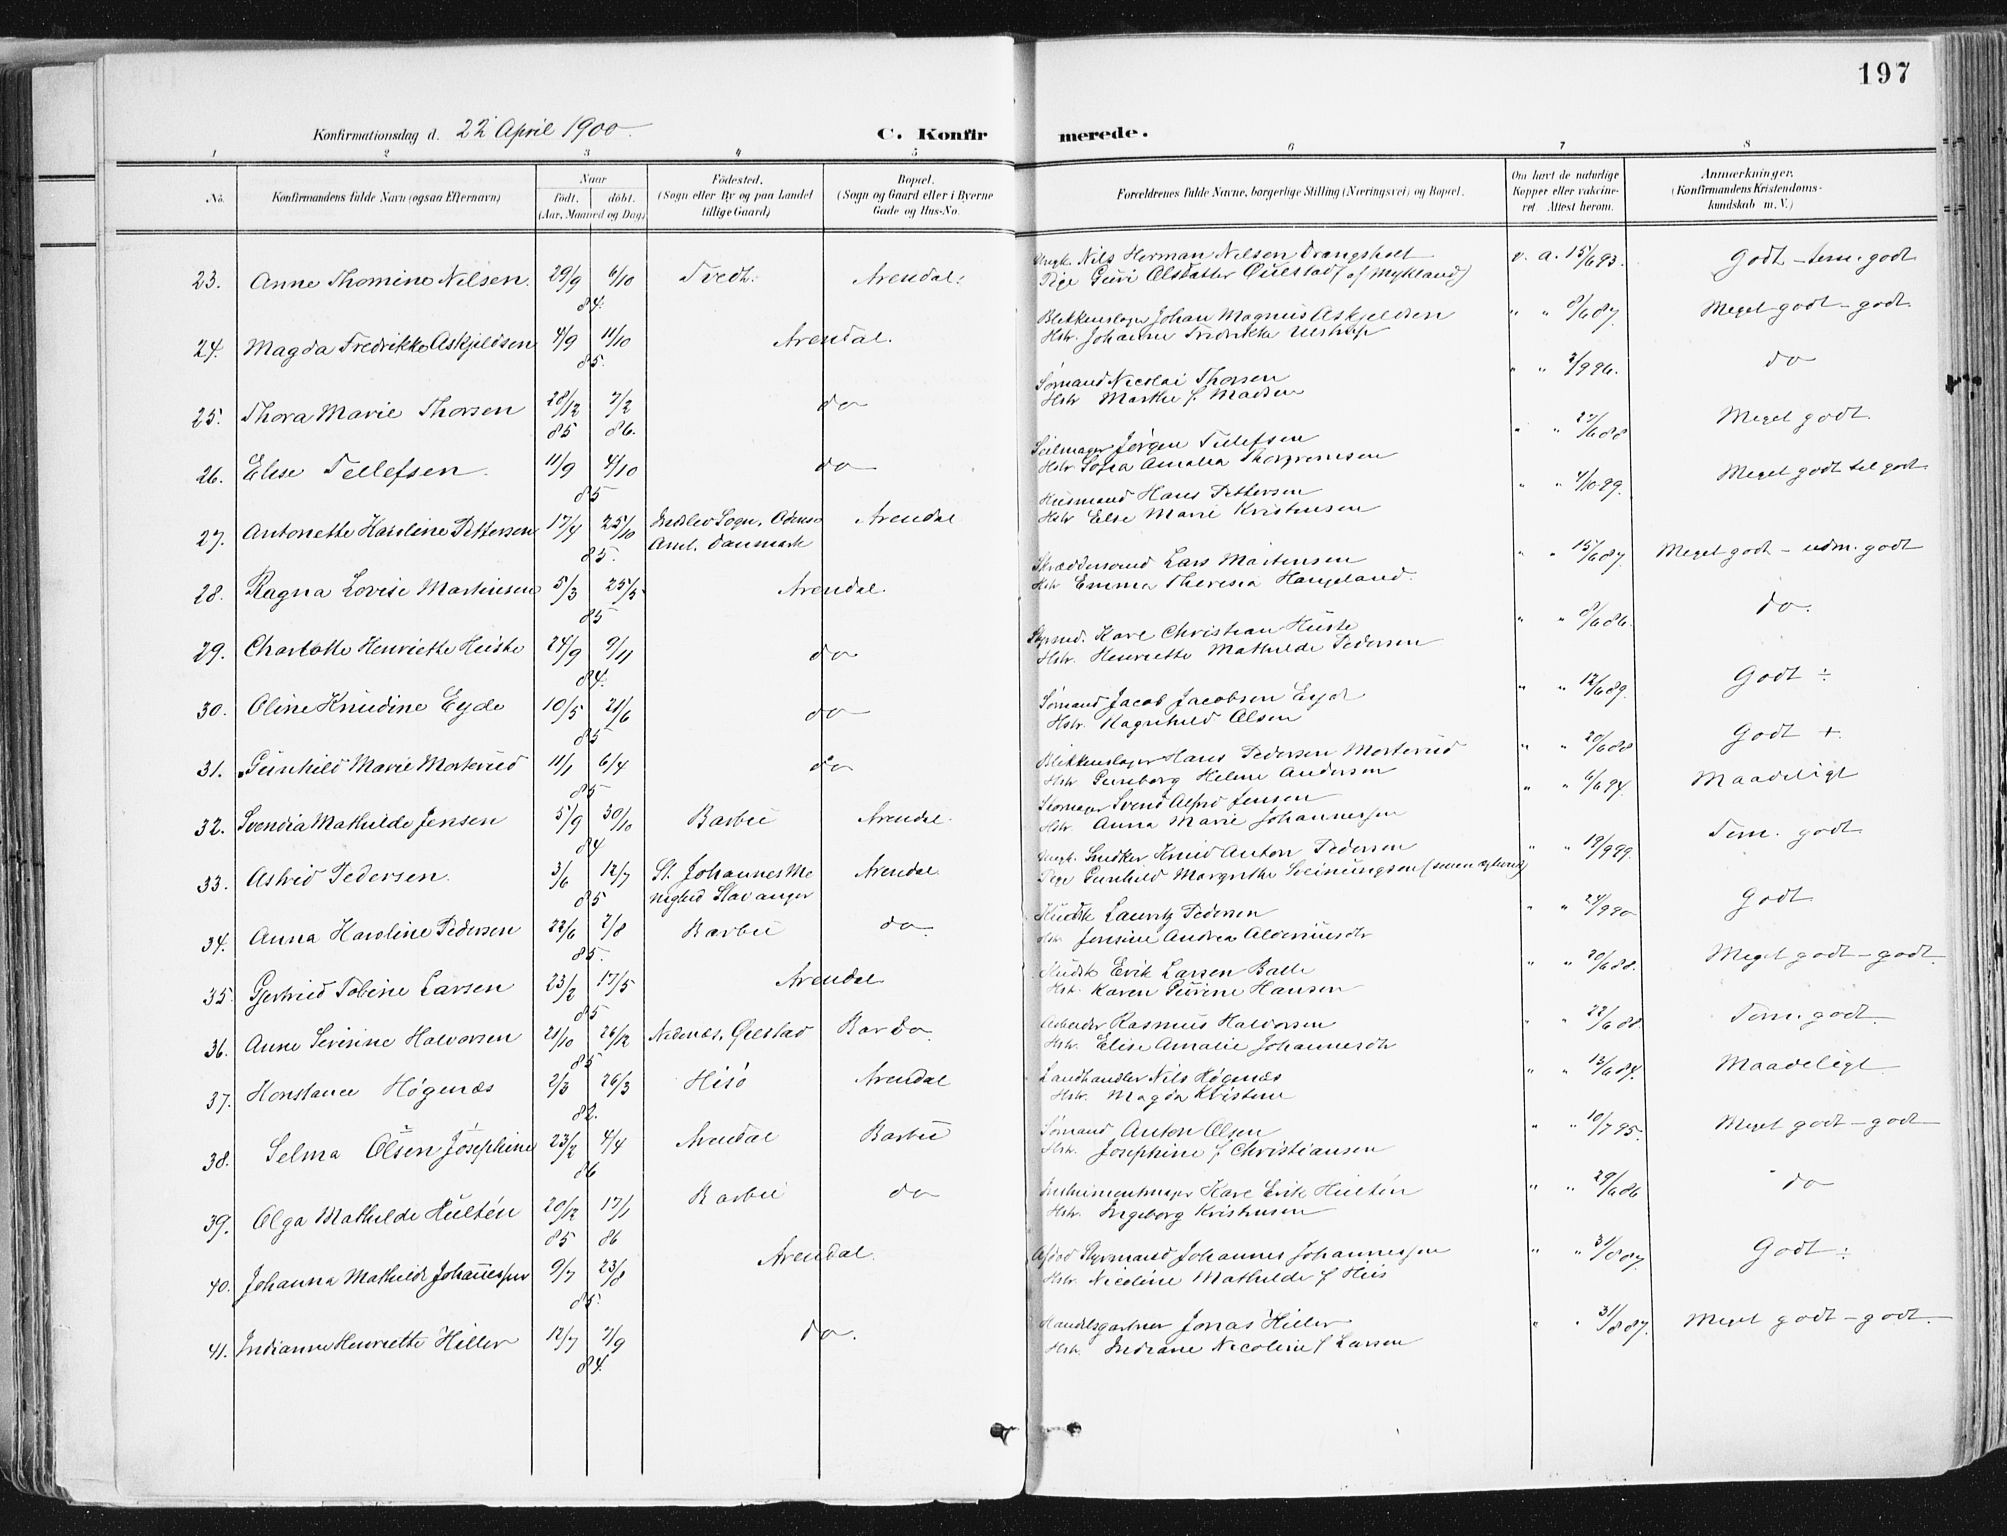 197
Konfirmationsdag d. 22 April 1900.
C. Konfirmerede.
1 2 3 4 5 6 7 8
No. Konfirmandens fulde Navn (ogsaa Efternavn) Naar født. døbt. (Aar, Maaned og Dag) Fødested. (Sogn eller By og paa Landet tillige Gaard) Bopæl. (Sogn og Gaard eller i Byerne Gade og Hus-No. Forældrenes fulde Navne, borgerlige Stilling (Næringsvei) og Bopæl. Om havt de naturlige Kopper eller vaccineret. Attest herom. Anmærkninger. (Konfirmandens Kristendomskundskab m. V.)
23. Anne Thomine Nilsen. 29/9 6/10 84. Tvedt. Arendal. Ungk. Nils Herman Nilsen Drangsholt v. a. 15/6 93. Godt - tem. godt
Pige Guri Olsdatter (af Mykland)
24. Magda Fredrikke Askjeldsen 4/9 11/10 85. Arendal. Blikkenslager Johan Magnus Askjeldsen " " 8/6 87. Meget godt - godt.
Hstr. Johanne Fredrikke Ulstrup
25. Thora Marie Thorsen 28/12 85 7/2 86. do Sømand Nicolai Thorsen " " 3/9 96. do
Hstr Marthe f. Madsen
26. Elise Tellefsen. 11/9 4/10 85 do Seilmager Jørgen Tellefsen " " 27/6 88 Meget godt.
Hstr Sofia Amalia
27. Antonette Karoline Pettersen 17/4 25/10 85. Sogn, Odense Arendal Husmand Hans Pettersen " " 4/10 99. Meget godt til godt.
Amt. Danmark Hstr Else Marie Kristensen
28. Ragna Lovise Martinsen 5/3 25/5 85 Arendal. Skræddersvend Lars Martensen " " 15/6 87. Meget godt - udm. godt
Hstr Emma Theresia Haugeland.
29. Charlotte Henriette Heiste 24/9 9/11 84. do Styrmd. Karl Christian Heiste " " 8/6 86. do.
Hstr. Henriette Mathilde Pedersen
30. Oline Knudine Eyde 10/5 21/6 85 do Sømand Jacob Jacobsen Eyde " " 12/6 89. Godt ÷
Hstr. Ragnhild Olsen
31. Gunhild Marie Morterud 11/1 6/4 85 do Blikkenslager Hans Pedersen Morterud " " 20/6 88 Godt +.
Hstr. Gunborg Helene Andersen
32. Svendia Mathilde Jensen 5/9 30/10 84 Barbu Arendal. Skomager Svend Alfred Jensen " " 6/6 94. Maadeligt
Hstr. Anna Marie Johannessen
33. Astrid Pedersen. 3/6 12/7 85 St. Johannes Me Arendal Ungk. Snedker Knud Anton Pedersen " " 19/9 99. Tem. godt
nighed Stavanger Pige Gunhild Margrethe Sveinungsen
34. Anna Karoline Pedersen 22/6 2/8 85. Barbu do. Lauritz Pedersen " " 24/9 90 Godt
Hstr. Jensine Andrea
35. Gjertrud Tobine Larsen 23/2 17/5 85 Arendal Erik Larsen Balle " " 20/6 88. Meget godt - godt.
Hstr. Karen Gurine Hansen
36. Anne Severine Halvorsen 21/10 26/12 85 Nedenæs, Øiestad Barbo Arbeider Rasmus Halvorsen " " 22/6 88. Tem. godt.
Hstr. Elise Amalie Johannesdtr
37. Konstance Høgenæs 2/3 26/3 82. Hisö Arendal Landhandler Nils Høgenæs " " 13/6 84. Maadeligt
Hstr. Magda Kristine
38. Selma Olsen Josephine 23/2 4/4 86 Arendal Barbu Sømand Anton Olsen " " 10/7 95. Meget godt - godt
Hstr. Josephine f. Christiansen
39. Olga Mathilde Hulten 20/12 85 17/1 86 Barbu do Instrumentmager Karl Erik Hultén " " 29/6 86 do
Hstr. Ingeborg Kristensen
40. Johanna Mathilde Johannessen 9/7 23/8 85. Arendal. Afdød Styrmand Johannes Johannessen " " 31/8 87. Godt ÷
Hstr. Nicoline Mathilde f. Hiis
41. Indianne Henriette Hiller 12/7 7/9 84. do. Handelsgartner Jonas Hiller " " 31/8 87. Meget godt - godt.
Hstr. Indiane Nicoline f Larsen